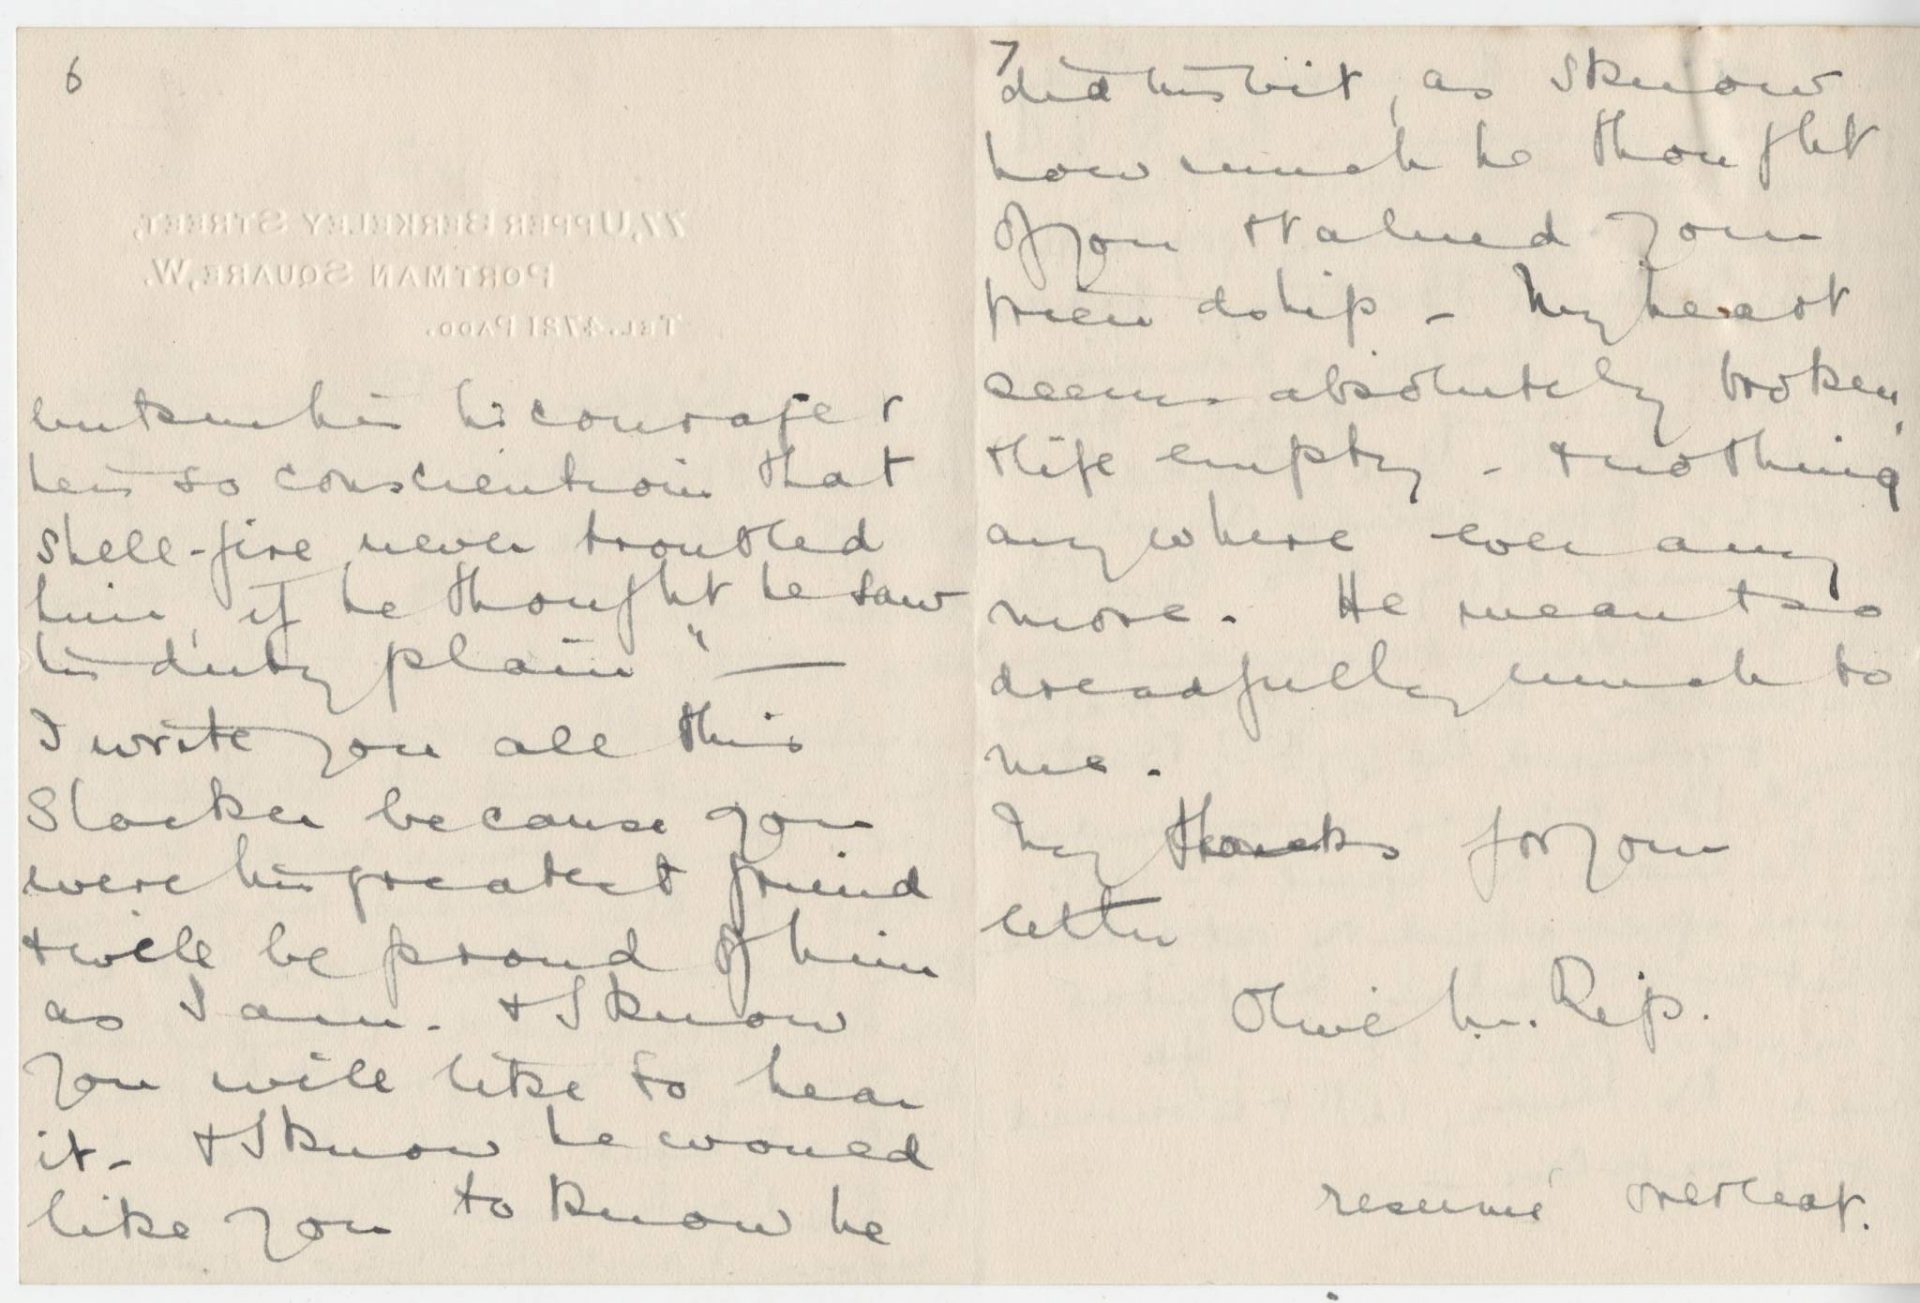 6
77, UPPER BERKELEY STREET,
PORTMAN SQUARE, W.
TEL. 4721 PADD.
but such is his courage &
he is so conscientious that
shell-fire never troubled
him, if he thought he saw
his duty plain" —
I write you all this
Slacker because you
were his greatest friend
& will be proud of him
as I am. & I know
you will like to hear
it - & I know he would
like you to know he
7
did his bit, as I know
how much he thought
of you & valued your
friendship - My heart
seems absolutely broken,
& life empty - & nothing
anywhere ever any
more. He meant so
dreadfully much to
me.
My thanks for your
letter
Olive M. Rip.
resumé overleaf.